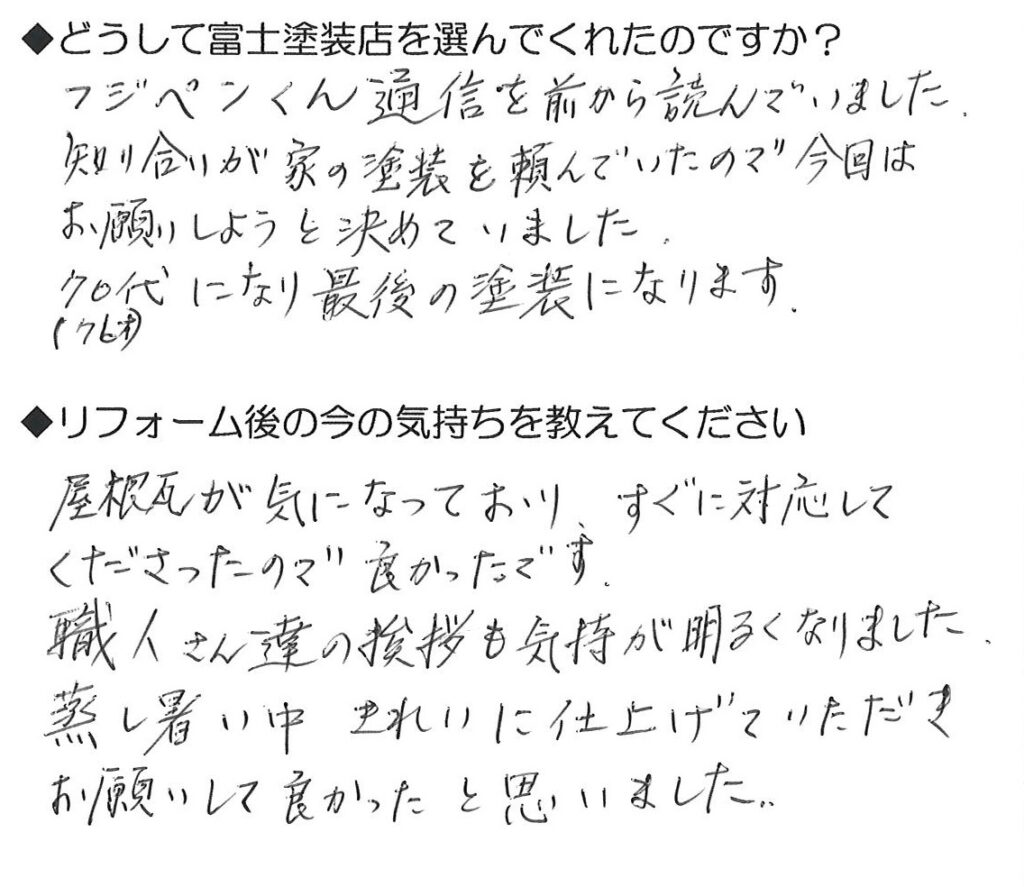 ◆どうして富士塗装店を選んでくれたのですか？
フジペンくん通信を前から読んでいました.
知り合いが家の塗装を頼んでいたので今回は
お願いしようと決めていました.
70代になり最後の塗装になります.
(76才)
◆リフォーム後の今の気持ちを教えてください
屋根瓦が気になっており、すぐに対応して
くださったので良かったです.
職人さん達の挨拶も気持が明るくなりました.
蒸し暑い中 きれいに仕上げていただき
お願いして良かったと思いました..